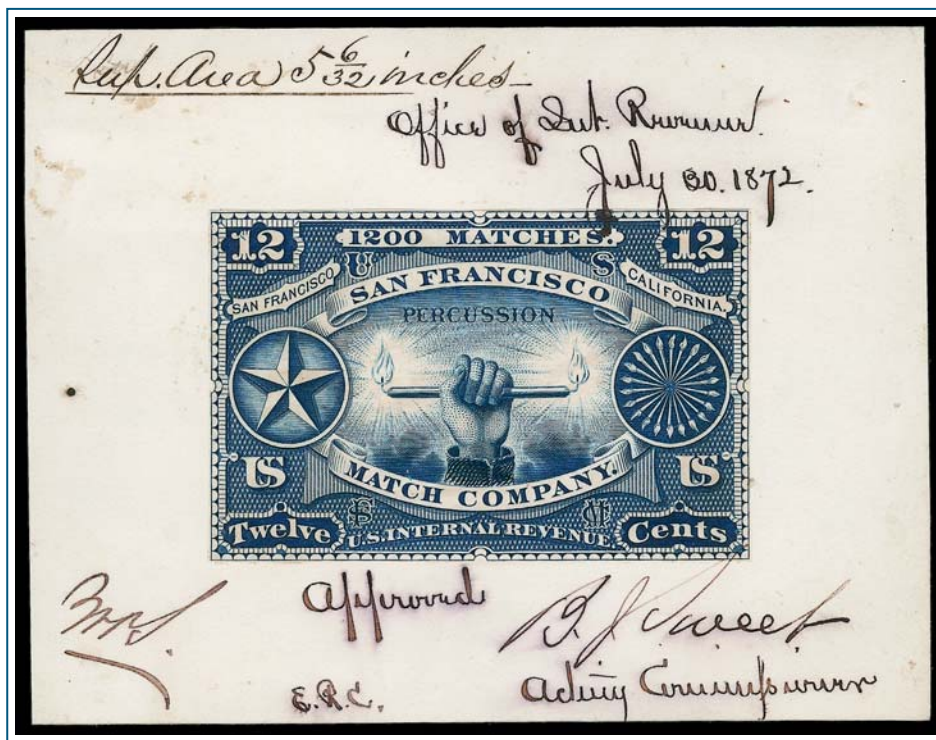 Sup. Area 5 6/32 inches
Office of Int. Revenue.
July 30. 1872.
12 1200 MATCHES. 12
U S
SAN FRANCISCO SAN FRANCISCO CALIFORNIA.
PERCUSSION
MATCH COMPANY.
US US
Twelve U.S. INTERNAL REVENUE. Cents
Approved B. J. Sweet
E.R.C. Acting Commissioner